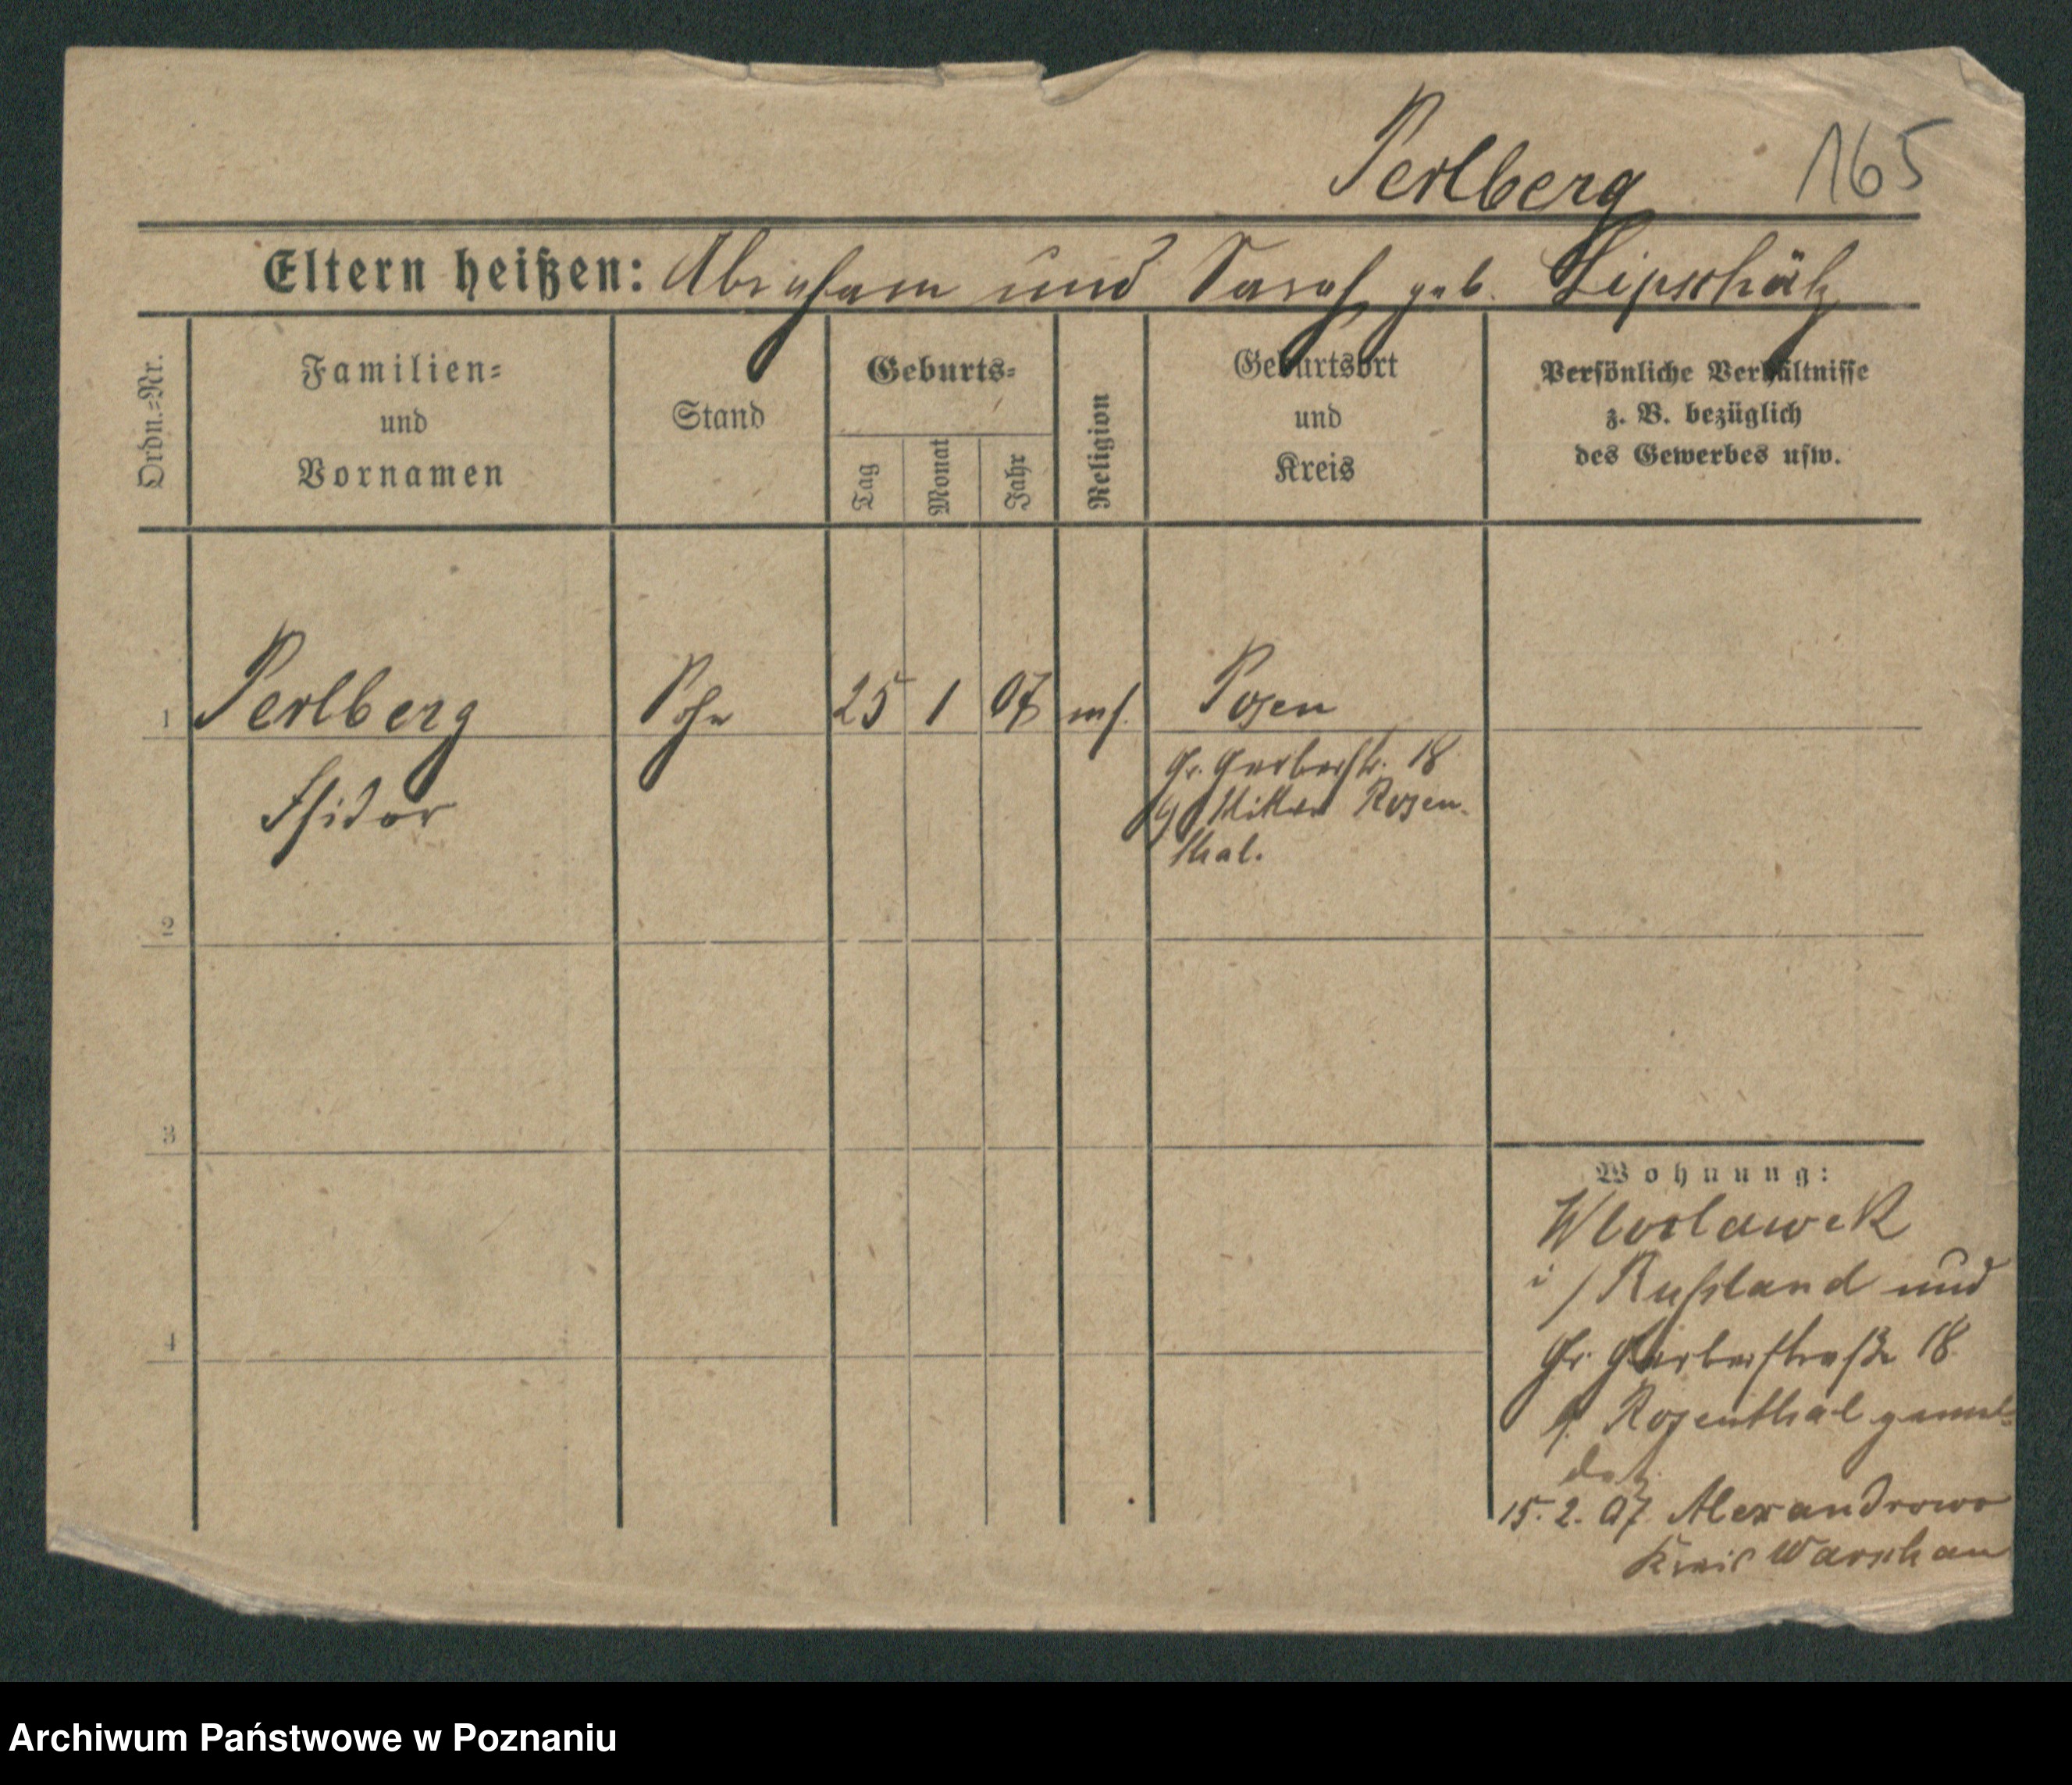 Perlberg 165
Eltern heißen: Abraham und Sarah geb. Lipschütz
Ordn.=Nr.
Familien=
und
Vornamen
Stand
Geburts=
Tag
Monat
Jahr
Religion
Geburtsort
und
Kreis
Persönliche Verhältnisse
z. B. bezüglich
des Gewerbes usw.
1 Perlberg Sohn 25 1 07 mos. Posen
Isidor
Gr. Gerberstr. 18
Rosen-
thal.
2
3
4
Wohnung:
Wloclawek
i/Russland und
Gr. Gerberstraße 18
Rosenthal gemel-
det
15. 2. 07. Alexandrowo
Kreis Warschau
Archiwum Państwowe w Poznaniu